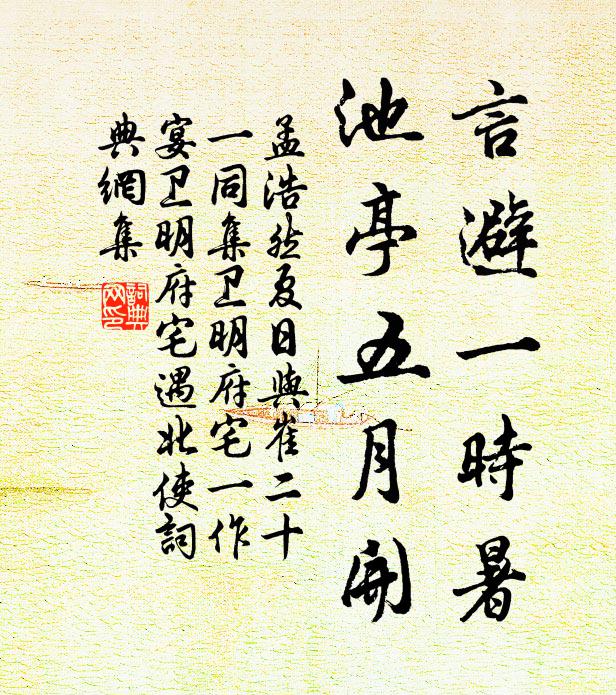 言避一時暑
池亭五月開
孟浩然夏日與崔二十
一同集卫明府宅一作
宴卫明府宅遇北使詞
典網集
詞典網印